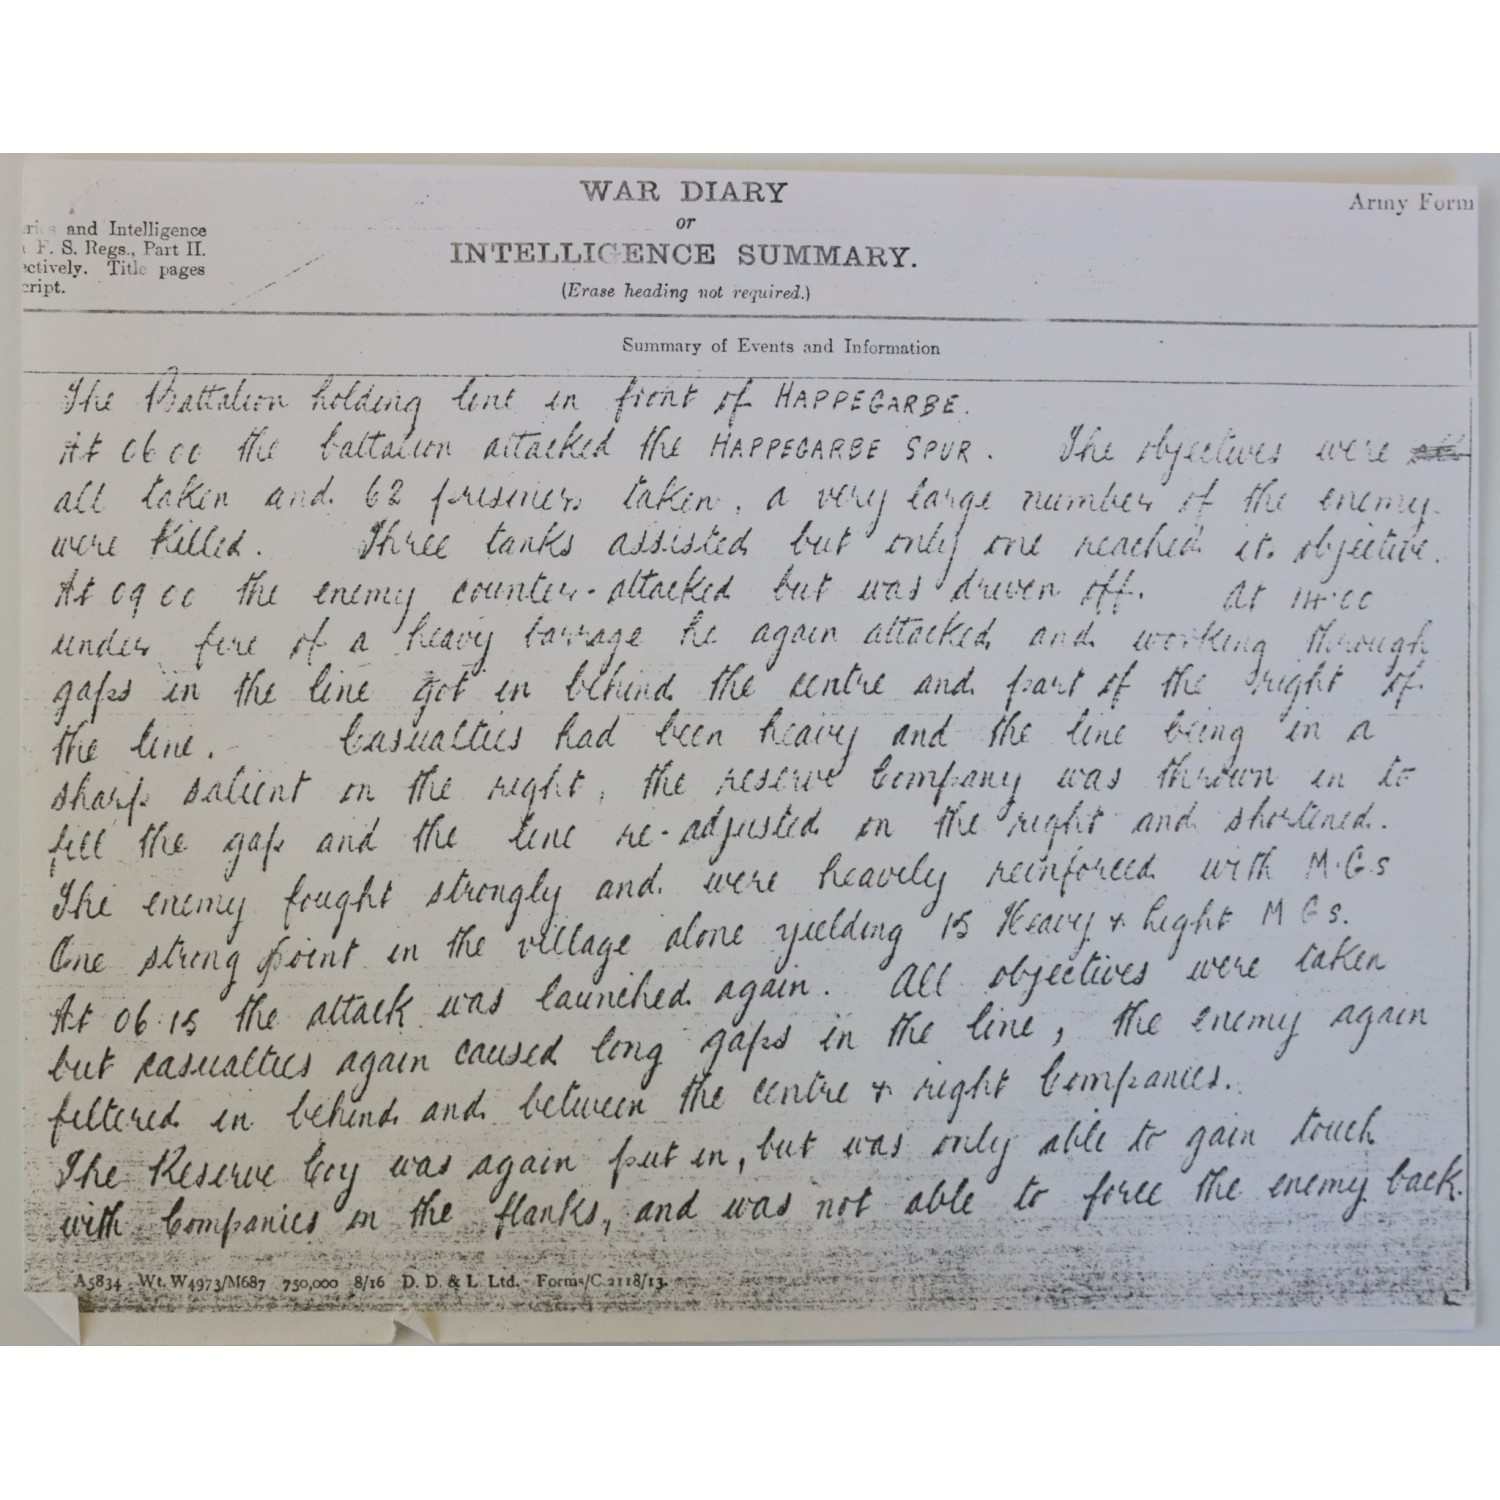 WAR DIARY
or
INTELLIGENCE SUMMARY.
(Erase heading not required.)
Army Form
and Intelligence
F. S. Regs., Part II.
ectively. Title pages
cript.
Summary of Events and Information
The Battalion holding line in front of HAPPEGARBE.
At 06 00 the battalion attacked the HAPPEGARBE SPUR. The objectives were
all taken and 62 prisoners taken, a very large number of the enemy
were killed. Three tanks assisted but only one reached its objective.
At 09 00 the enemy counter-attacked but was driven off. At 14.00
under fire of a heavy barrage he again attacked and working through
gaps in the line got in behind the centre and part of the right of
the line. Casualties had been heavy and the line being in a
sharp salient on the right, the reserve Company was thrown in to
fill the gap and the line re-adjusted on the right and shortened.
The enemy fought strongly and were heavily reinforced with M.G.s
One strong point in the village alone yielding 15 Heavy & Light M G s.
At 06.15 the attack was launched again. All objectives were taken
but casualties again caused long gaps in the line, the enemy again
filtered in behind and between the centre & right Companies.
The Reserve Coy was again put in, but was only able to gain touch
with Companies on the flanks, and was not able to force the enemy back.
A5834 Wt. W4973/M687 750,000 8/16 D. D. & L. Ltd. Forms/C.2118/13.